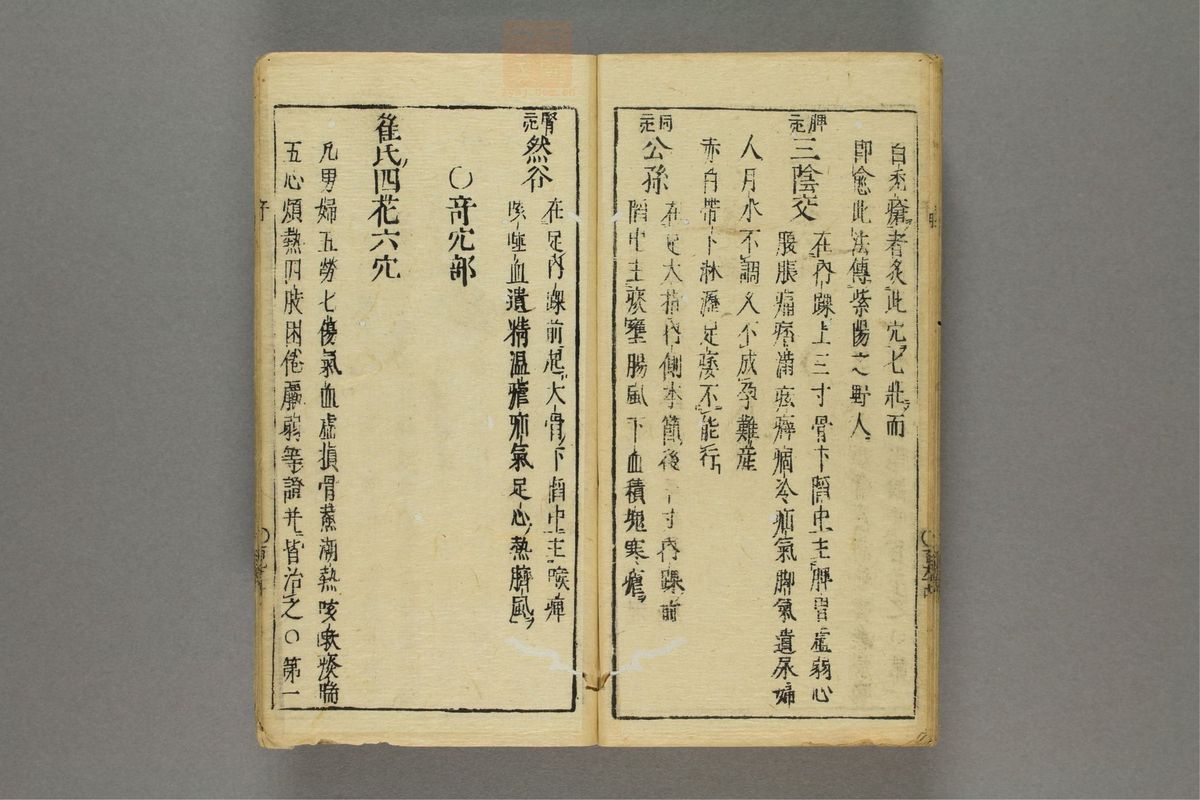 白禿瘡者炙此穴七壯而
即愈此法傳紫陽之野人
脾二 三陰交 在內踝上三寸骨下陷中主脾胃虛弱心
腹脹痛痞滿痃癖痼冷疝氣脚氣遺尿婦
人月水不調久不成孕難産
赤白帶下淋瀝足痿不能行
同二 公孫 在足大指內側本節後一寸內踝前
陷中主痰壅腸風下血積塊寒瘧
腎二 然谷 在足內踝前起大骨下陷中主喉痺
咳唾血遺精温瘧疝氣足心熱臍風
〇竒穴部
崔氏四花六穴
凡男婦五勞七傷氣血虛損骨蒸潮熱咳嗽痰喘
五心煩熱四肢困倦羸弱等證并皆治之〇第一